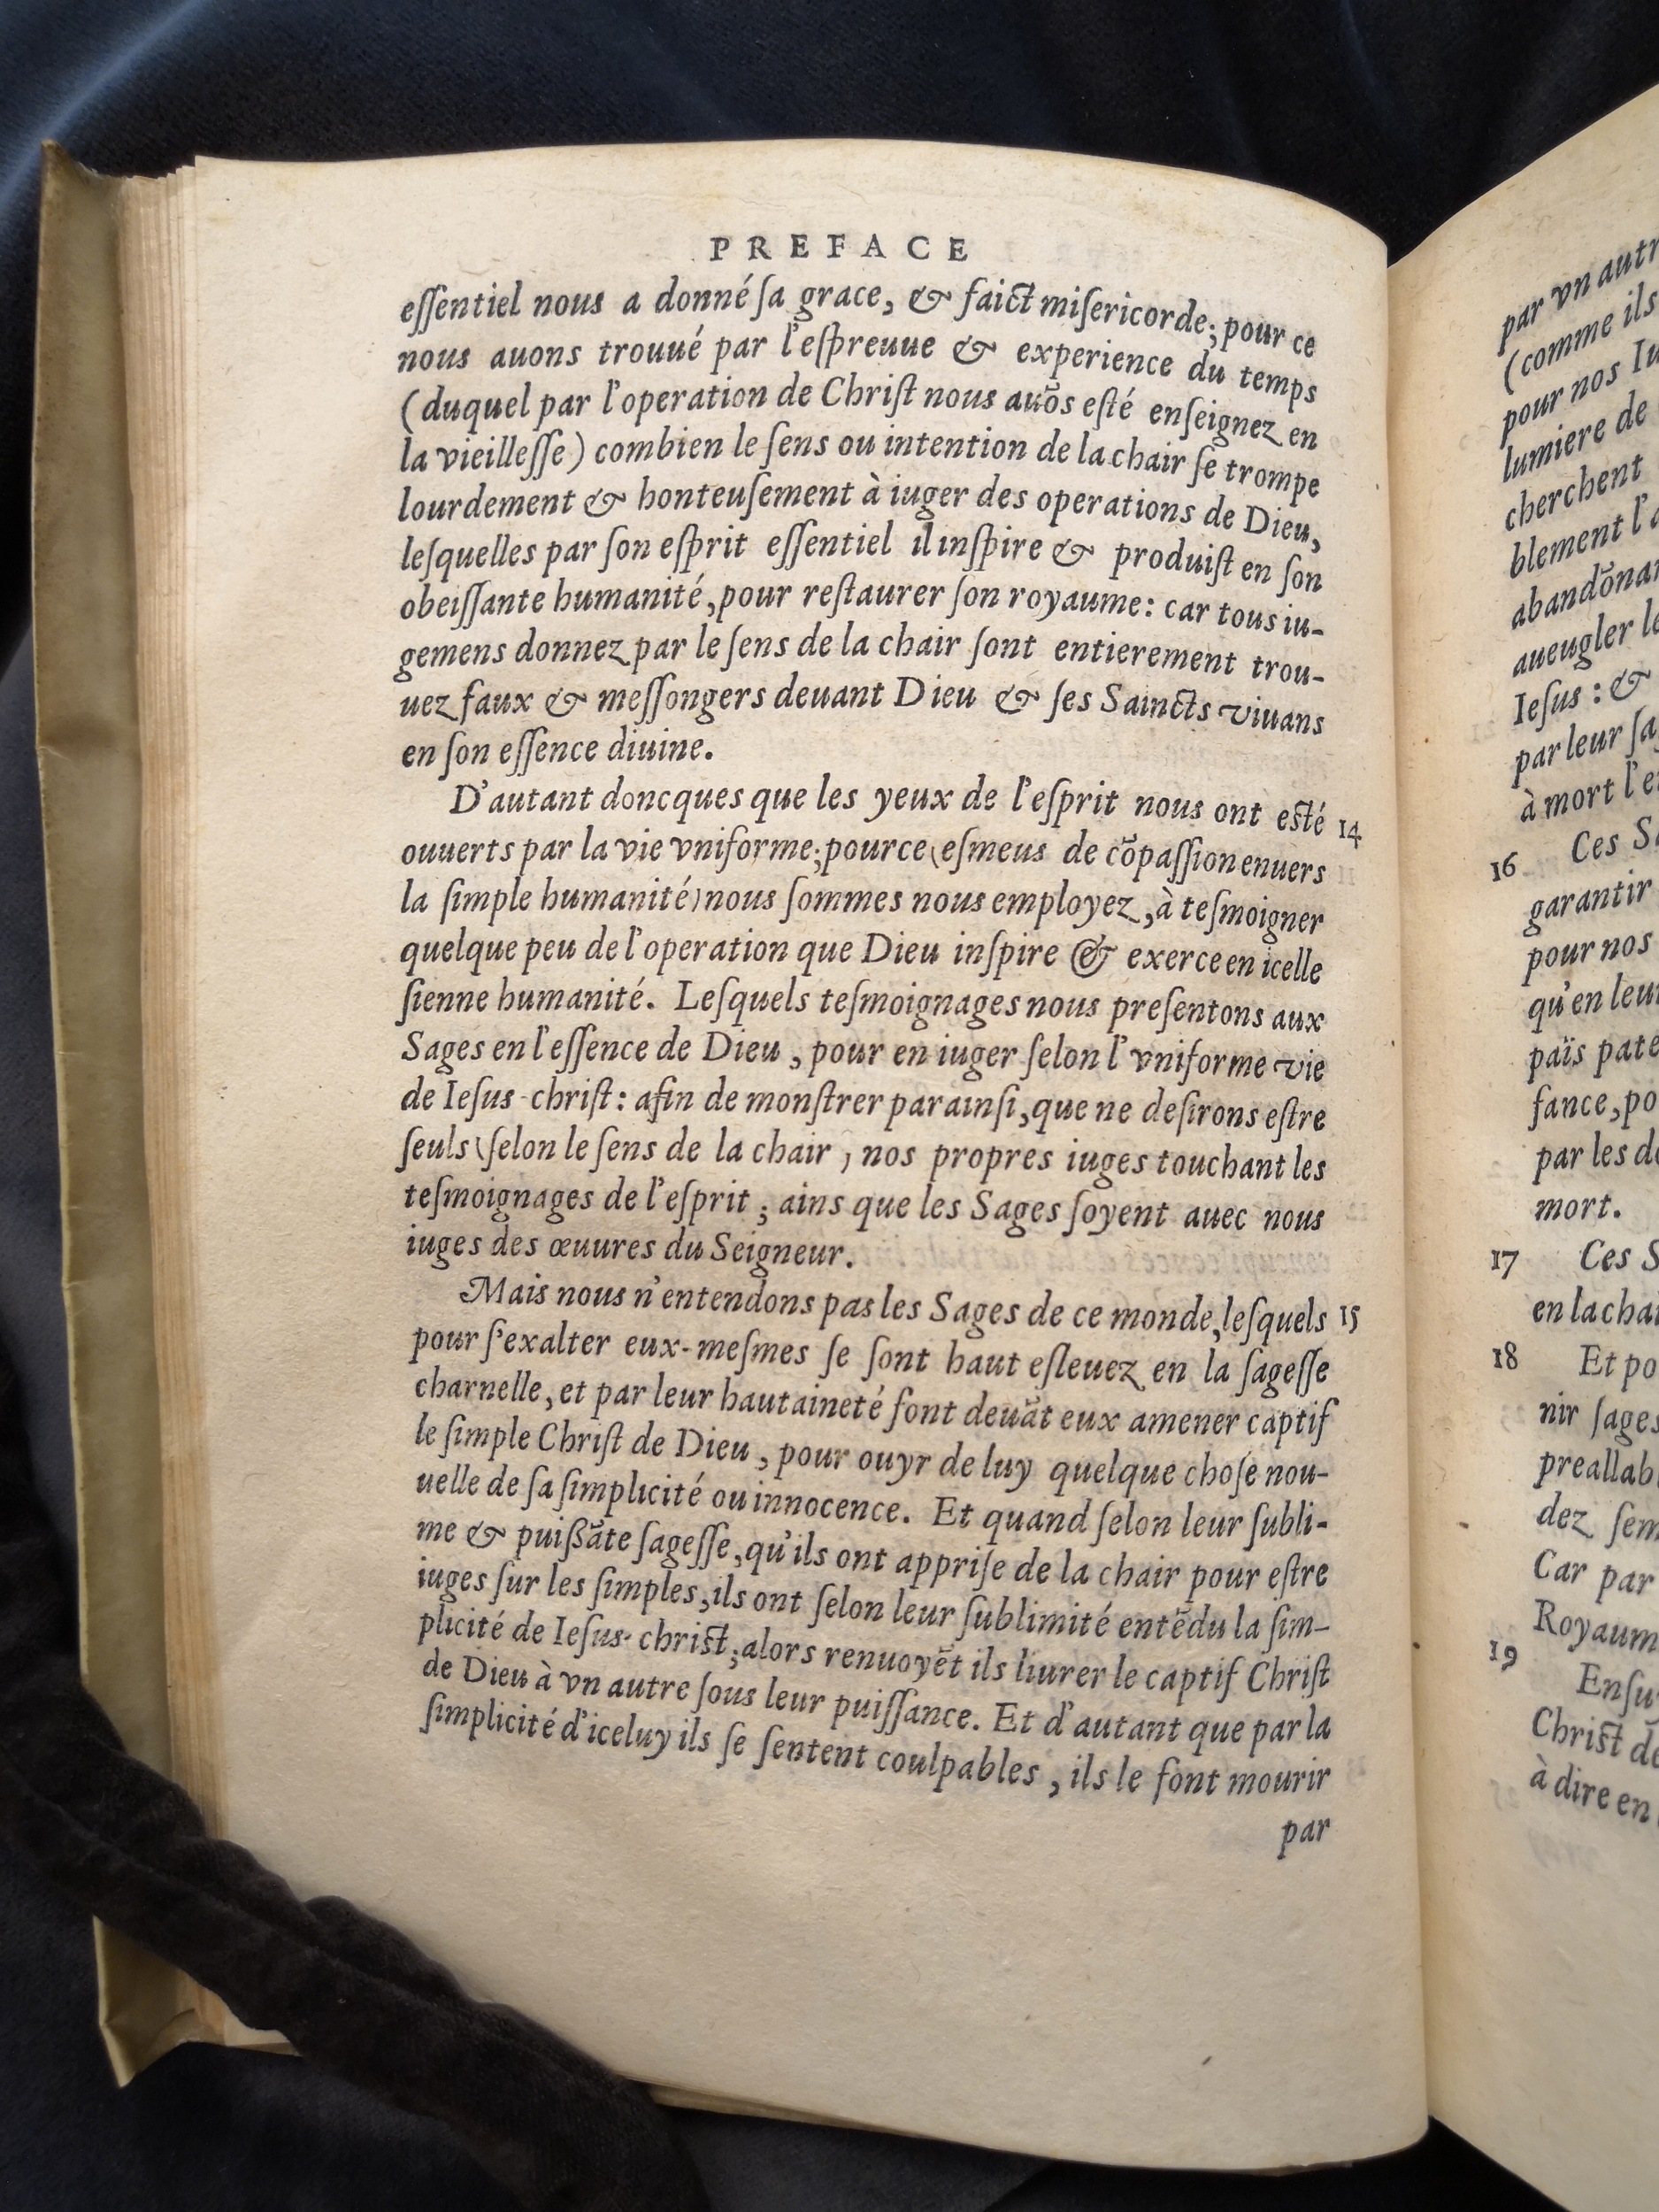 PREFACE
eſſentiel nous a donné ſa grace, & faict miſericorde; pour ce
nous auons trouué par l'eſpreuue & experience du temps
(duquel par l'operation de Chriſt nous auõs eſté enſeignez en
la vieilleſſe) combien le ſens ou intention de la chair ſe trompe
lourdement & honteuſement à iuger des operations de Dieu,
leſquelles par ſon eſprit eſſentiel il inſpire & produiſt en ſon
obeiſſante humanité, pour reſtaurer ſon royaume: car tous iu-
gemens donnez par le ſens de la chair ſont entierement trou-
uez faux & meſſongers deuant Dieu & ſes Saincts viuans
en ſon eſſence diuine.
D'autant doncques que les yeux de l'eſprit nous ont eſté 14
ouuerts par la vie vniforme; pource (eſmeus de cõpaſſion enuers
la ſimple humanité) nous ſommes nous employez, à teſmoigner
quelque peu de l'operation que Dieu inſpire & exerce en icelle
ſienne humanité. Leſquels teſmoignages nous preſentons aux
Sages en l'eſſence de Dieu, pour en iuger ſelon l'vniforme vie
de Ieſus-chriſt: afin de monſtrer parainſi, que ne deſirons eſtre
ſeuls (ſelon le ſens de la chair) nos propres iuges touchant les
teſmoignages de l'eſprit; ains que les Sages ſoyent auec nous
iuges des œuures du Seigneur.
Mais nous n'entendons pas les Sages de ce monde, leſquels 15
pour ſ'exalter eux-meſmes ſe ſont haut eſleuez en la ſageſſe
charnelle, et par leur hautaineté font deuãt eux amener captif
le ſimple Chriſt de Dieu, pour ouyr de luy quelque choſe nou-
uelle de ſa ſimplicité ou innocence. Et quand ſelon leur ſubli-
me & puißãte ſageſſe, qu'ils ont appriſe de la chair pour eſtre
iuges ſur les ſimples, ils ont ſelon leur ſublimité entẽdu la ſim-
plicité de Ieſus-chriſt; alors renuoyẽt ils liurer le captif Chriſt
de Dieu à vn autre ſous leur puiſſance. Et d'autant que par la
ſimplicité d'iceluy ils ſe ſentent coulpables, ils le font mourir
par
par vn autr
(comme ils
pour nos Iu
lumiere de
cherchent
blement l'a
abandõnan
aueugler le
Ieſus: &
par leur ſa
à mort l'e
16 Ces S
garantir
pour nos
qu'en leur
païs pate
fance, po
par les d
mort.
17 Ces S
en la chai
18 Et po
nir ſages
preallab
dez ſem
Car par
Royaum
19 Enſuy
Chriſt de
à dire en